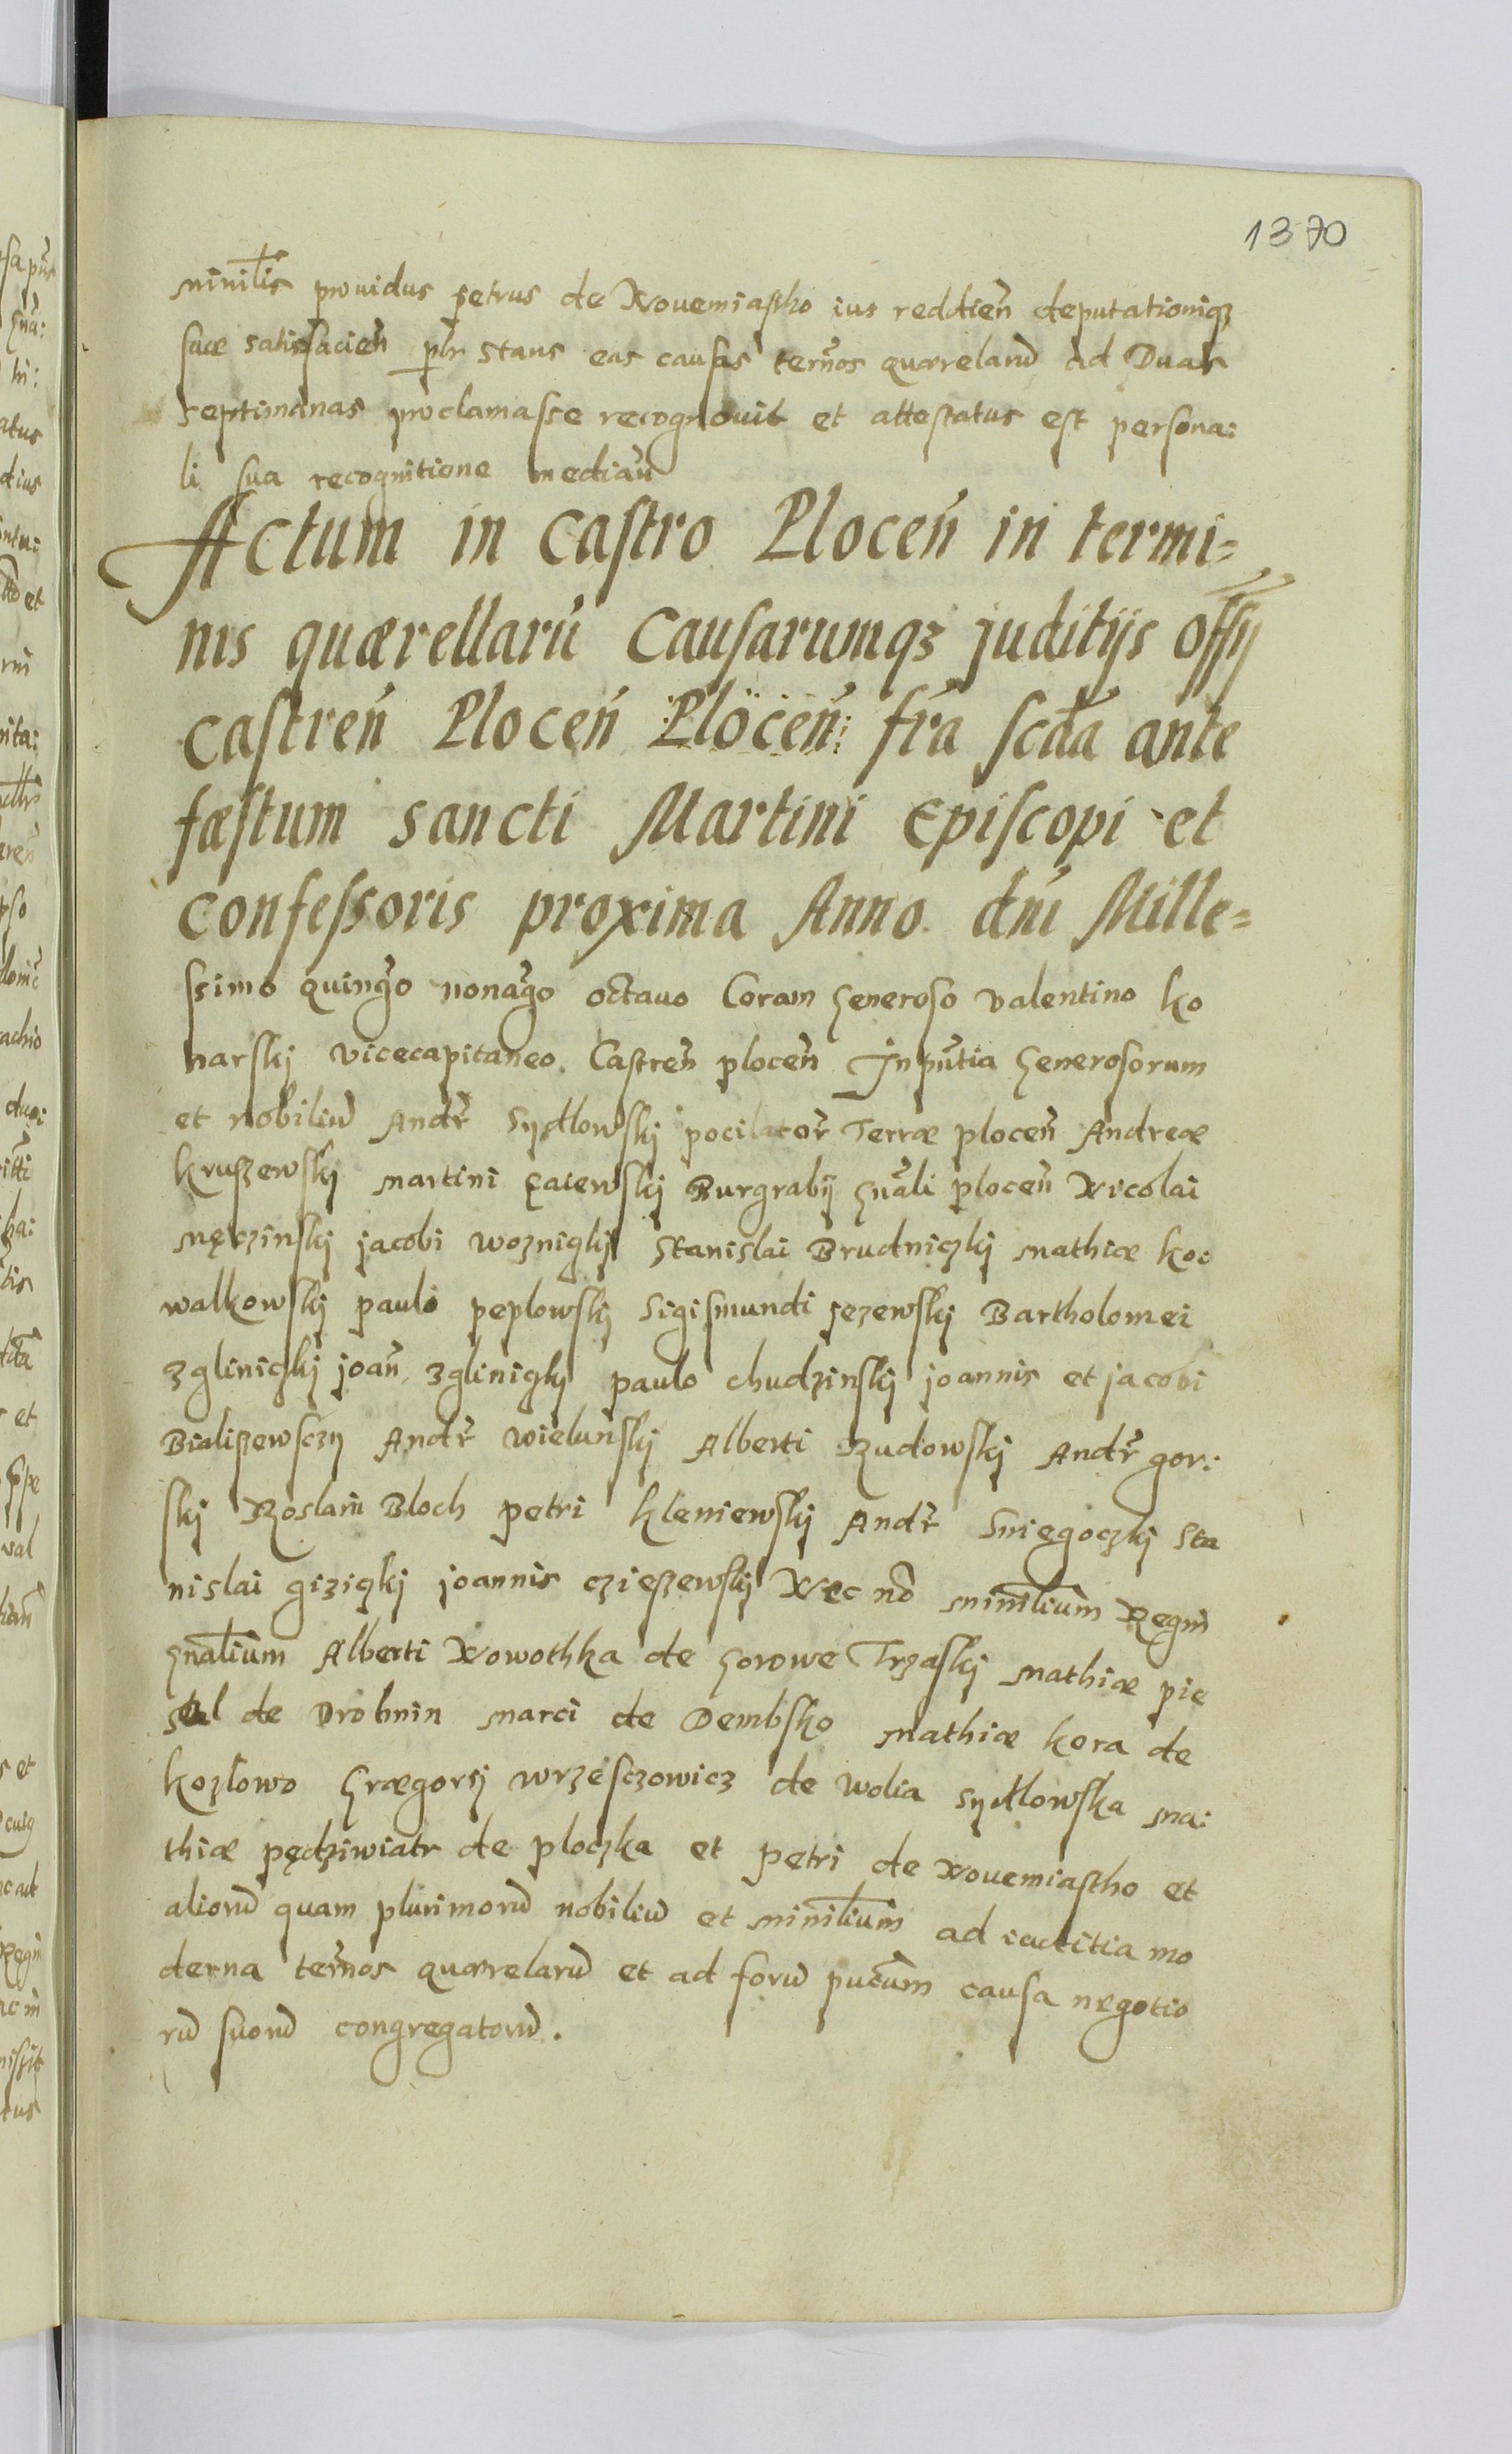 1370
minilis prouidus petrus de Nouemiastho ius reddien deputationiq3
suæ satisfacien plr stans eas causas termos quærelarum ad Duas
septimanas proclamasse recognouit et attestatus est persona:
li sua recognitione median
Actum in Castro Plocen in termi=
nis quærellaru Causarumq3 juditijs offy
castren Plocen Plocen: fra scda ante
fæstum sancti Martini Episcopi et
confessoris proxima Anno dni Mille=
ssimo quingo nonago octauo Coram Generoso valentino ko
narskj vicecapitaneo. Castren plocen Inpntia Generosorum
et nobiliu Andr Sydlowskj pocilator Terræ plocen Andreæ
kruszewskj martini Gaiewskj Burgrabij Gnali plocen Nicolai
męczinskj jacobi woznigkj Stanislai Brudniczkj mathiæ ko:
walkowskj pauli peplowskj Sigismundi jezewskj Bartholomei
zgliniczkj joan zglinigkj paulo chudzinskj joannis et jacobi
Bialiszewsczy Andr wielunskj Alberti Rudowskj Andr gor:
skj Roslam Bloch petri kleniewskj Andr Sniegoczkj Sta
nislai giziczkj joannis czieszewskj Nec no minilium Regni
Gnalium Alberti Nowothka de Gorowe Trzaskj mathiæ pie
sal de Drobnin marci de Dembsko mathiæ kora de
kozlowo Grægorij wrzesczowicz de wolia sydlowska ma:
thiæ pędziwiatr de ploczka et petri de Nouemiastho et
aliorum quam plurimorum nobilium et minilium ad iuditia mo
derna termos quærelarum et ad forum puctum causa negotio
rum suorum congregatorum.